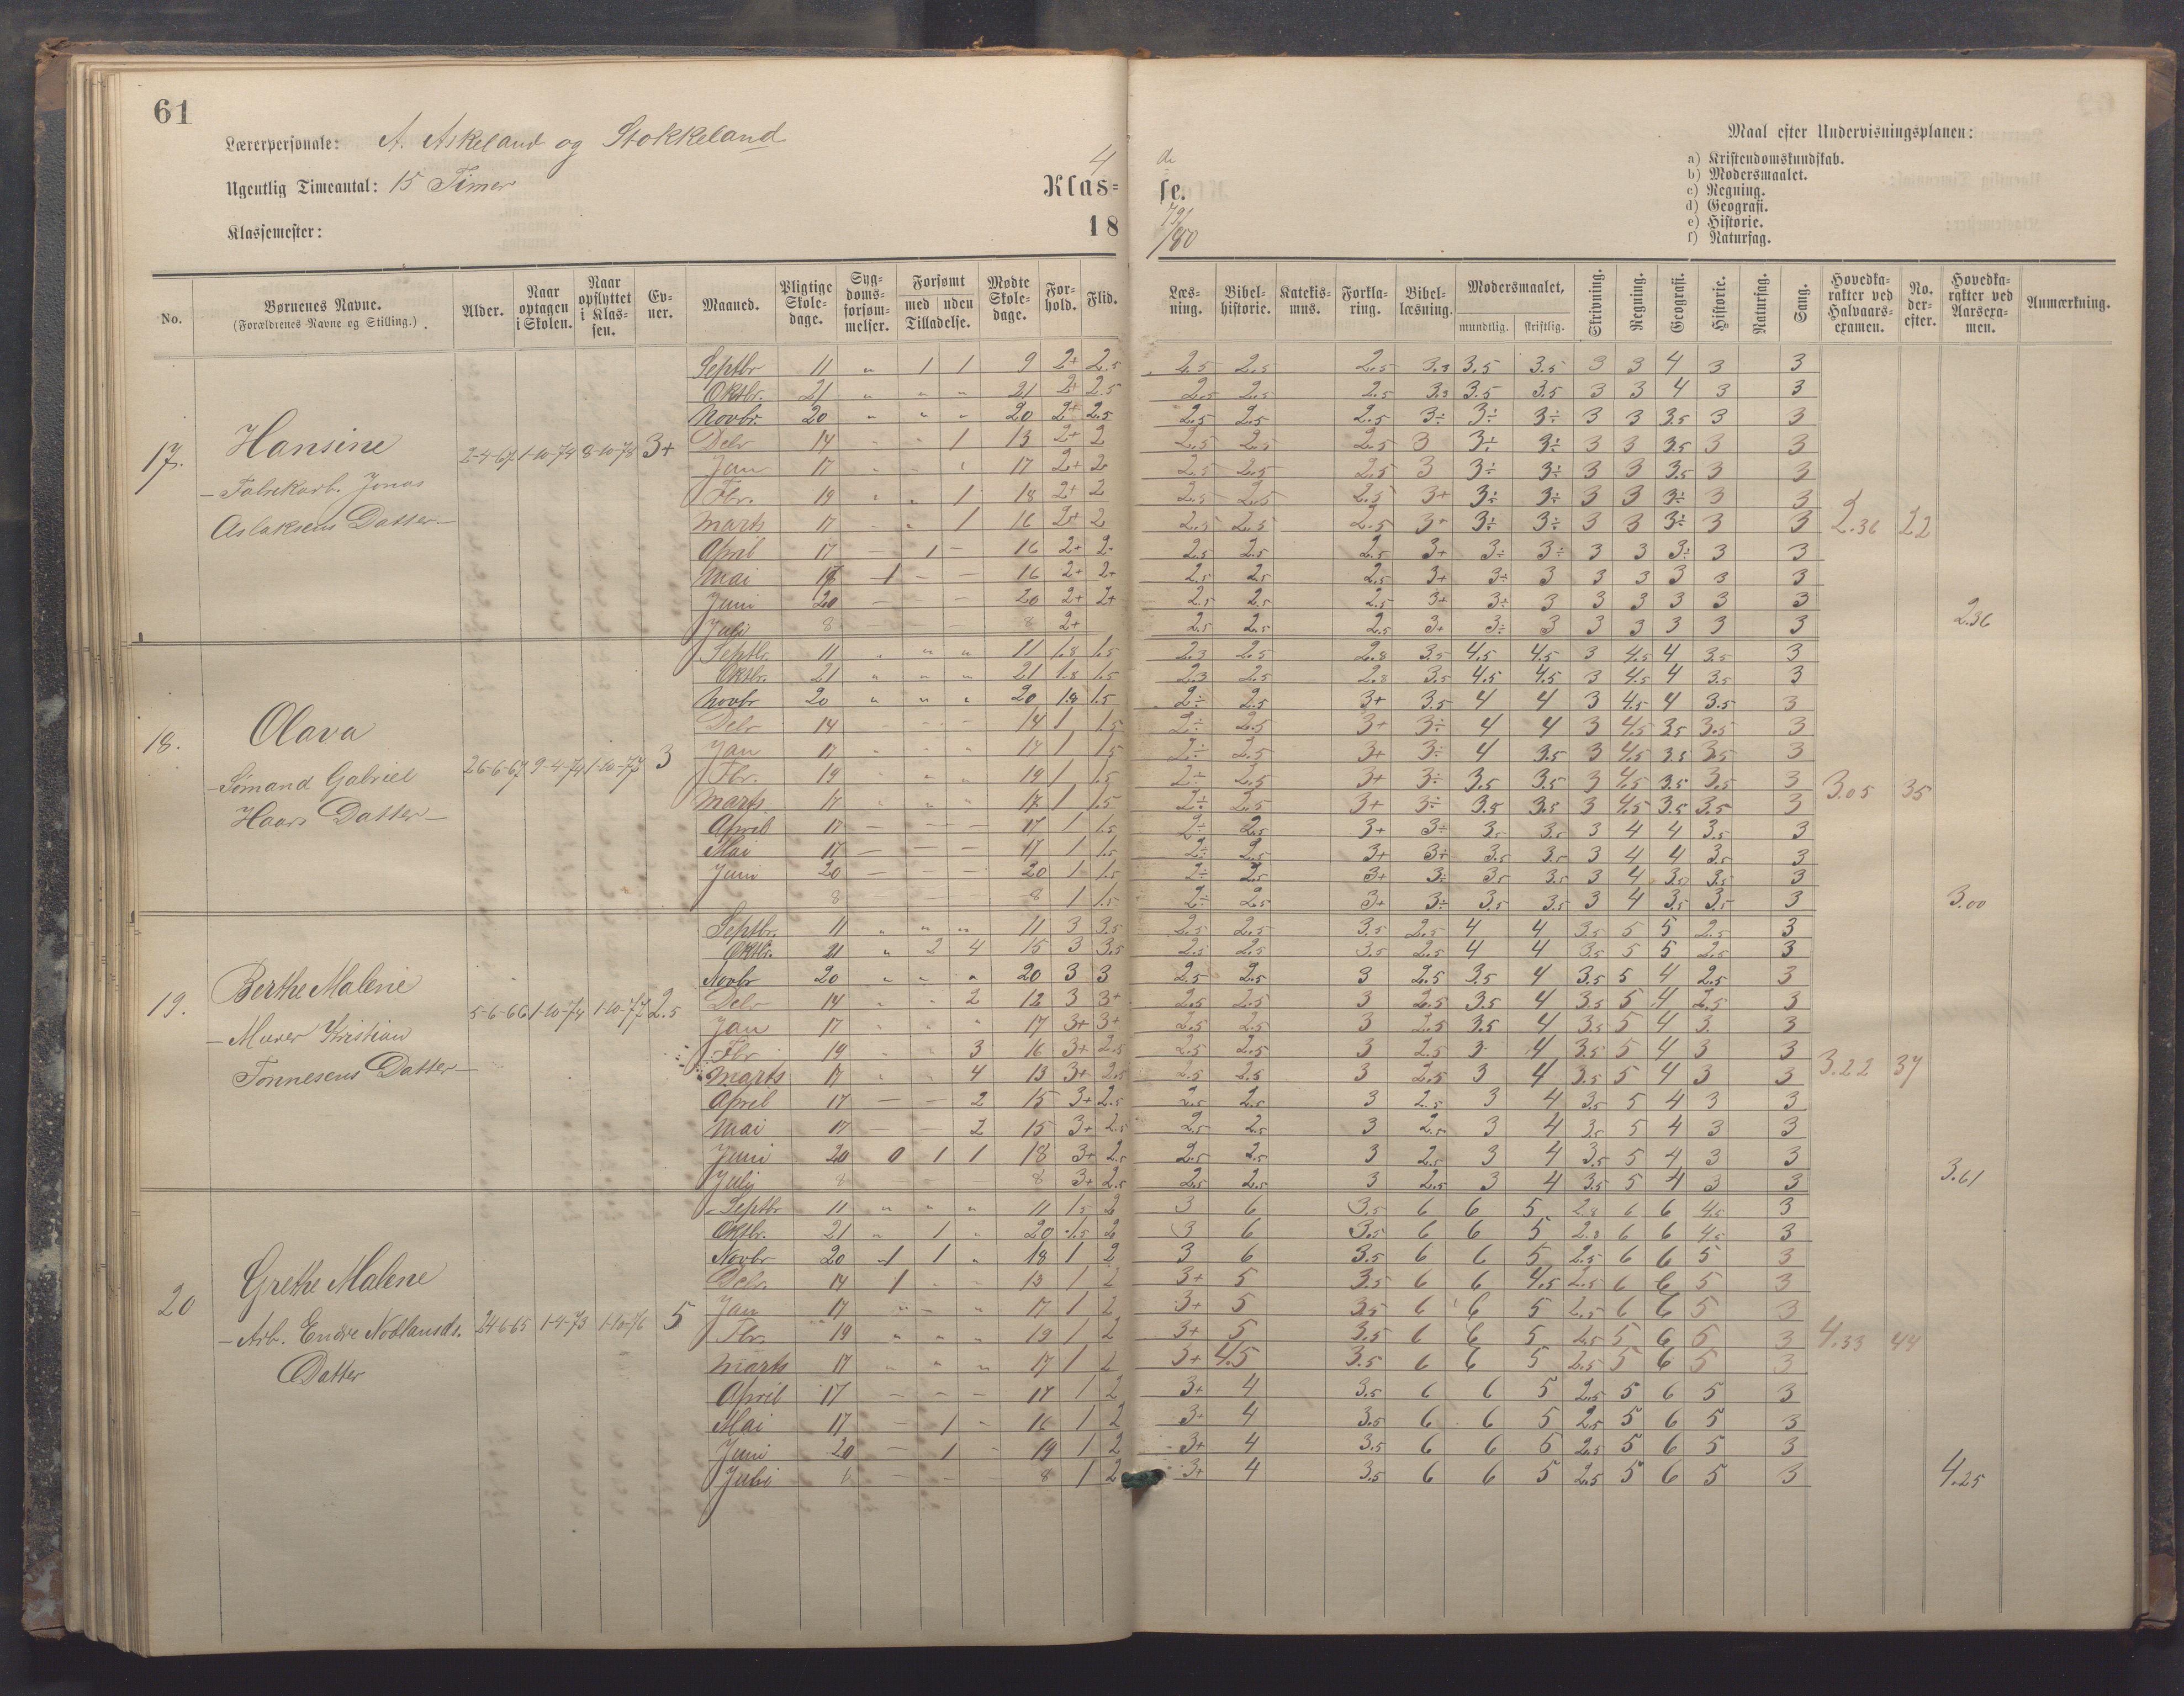 61
Lærerpersonale: A. Askeland og Stokkeland
Ugentlig Timeantal: 15 Timer
Klassemester:
4 de
Klas- se.
18 79/80
Maal efter Undervisningsplanen:
a) Kristendomskundskab.
b) Modersmaalet.
c) Regning.
d) Geografi.
e) Historie.
f) Naturfag.
No. | Børnenes Navne. (Forældrenes Navne og Stilling.) | Alder. | Naar optagen i Skolen. | Naar opflyttet i Klassen. | Evner. | Maaned. | Pligtige Skoledage. | Sygdomsforsømmelser. | Forsømt med uden Tilladelse. | Mødte Skoledage. | Forhold. | Flid. | Læsning. | Bibelhistorie. | Katekismus. | Forklaring. | Bibellæsning. | Modersmaalet, mundtlig. skriftlig. | Skrivning. | Regning. | Geografi. | Historie. | Naturfag. | Sang. | Hovedkarakter ved Halvaarsexamen. | No. derefter. | Hovedkarakter ved Aarsexamen. | Anmærkning.
17. Hansine
- Fabrikarb. Jonas
Aslaksens Datter -
2-4-67 1-10-74 8-10-78 3+
Septbr 11 " 1 1 9 2+ 2.5 2.5 2.5 2.5 3.3 3.5 3.5 3 3 4 3 3
Oktbr. 21 " " " 21 2+ 2.5 2.5 2.5 2.5 3.3 3.5 3.5 3 3 4 3 3
Novbr. 20 " " " 20 2+ 2.5 2.5 2.5 2.5 3÷ 3÷ 3÷ 3 3 3.5 3 3
Debr 14 " " 1 13 2+ 2 2.5 2.5 2.5 3 3÷ 3÷ 3 3 3.5 3 3
Jan 17 " " " 17 2+ 2 2.5 2.5 2.5 3 3÷ 3÷ 3 3 3.5 3 3
Fbr. 19 " " 1 18 2+ 2 2.5 2.5 2.5 3+ 3÷ 3÷ 3 3 3÷ 3 3
Marts 17 " " 1 16 2+ 2 2.5 2.5 2.5 3+ 3÷ 3÷ 3 3 3÷ 3 3 2.36 22
April 17 — 1 — 16 2+ 2 2.5 2.5 2.5 3+ 3÷ 3÷ 3 3 3÷ 3 3
Mai 17 1 — — 16 2+ 2+ 2.5 2.5 2.5 3+ 3÷ 3 3 3 3 3 3
Juni 20 — — 20 2+ 2+ 2.5 2.5 2.5 3+ 3÷ 3 3 3 3 3 3
Juli 8 — — — 8 2+ 2.5 2.5 2.5 3+ 3÷ 3 3 3 3 3 3 2.36
18. Olava
- Sømand Gabriel
Haars Datter -
26-6-67 9-4-74 1-10-77 3
Septbr. 11 " " " 11 1.8 1.5 2.3 2.5 2.8 3.5 4.5 4.5 3 4.5 4 3.5 3
Oktbr. 21 " " " 21 1.8 1.5 2.3 2.5 2.8 3.5 4.5 4.5 3 4.5 4 3.5 3
Novbr 20 " " " 20 1.8 1.5 2÷ 2.5 3+ 3.5 4 4 3 4.5 4 3.5 3
Debr 14 " " " 14 1 1.5 2÷ 2.5 3+ 3÷ 4 4 3 4.5 3.5 3.5 3
Jan 17 " " " 17 1 1.5 2÷ 2.5 3+ 3÷ 4 3.5 3 4.5 3.5 3.5 3
Fbr. 19 " " " 19 1 1.5 2÷ 2.5 3+ 3÷ 3.5 3.5 3 4.5 3.5 3.5 3
Marts 17 " " " 17 1 1.5 2÷ 2.5 3+ 3÷ 3.5 3.5 3 4.5 3.5 3.5 3 3.05 35
April 17 — — — 17 1 1.5 2÷ 2.5 3+ 3÷ 3.5 3.5 3 4 4 3.5 3
Mai 17 — — — 17 1 1.5 2÷ 2.5 3+ 3÷ 3.5 3.5 3 4 4 3.5 3
Juni 20 — — — 20 1 1.5 2÷ 2.5 3+ 3÷ 3.5 3.5 3 4 3.5 3.5 3
8 — — — 8 1 1.5 2÷ 2.5 3+ 3÷ 3.5 3.5 3 4 3.5 3.5 3 3.00
19. Berthe Malene
- Murer Kristian
Tønnesens Datter -
5-6-66 1-10-74 1-10-77 2.5
Septbr. 11 " " " 11 3 3.5 2.5 2.5 3.5 2.5 4 4 3.5 5 5 2.5 3
Oktbr. 21 " 2 4 15 3 3.5 2.5 2.5 3.5 2.5 4 4 3.5 5 5 2.5 3
Novbr 20 " " " 20 3 3 2.5 2.5 3 2.5 3.5 4 3.5 5 4 2.5 3
Debr 14 " " 2 12 3 3+ 2.5 2.5 3 2.5 3.5 4 3.5 5 4 2.5 3
Jan 17 " " " 17 3+ 3+ 2.5 2.5 3 2.5 3.5 4 3.5 5 4 3 3
Fbr 19 " " 3 16 3+ 2.5 2.5 2.5 3 2.5 3 4 3.5 5 4 3 3
Marts 17 " " 4 13 3+ 2.5 2.5 2.5 3 2.5 3 4 3.5 5 4 3 3 3.22 37
April 17 — — 2 15 3+ 2.5 2.5 2.5 3 2.5 3 4 3.5 5 4 3 3
Mai 17 — — 2 15 3+ 2.5 2.5 2.5 3 2.5 3 4 3.5 5 4 3 3
Juni 20 0 1 1 18 3+ 2.5 2.5 2.5 3 2.5 3 4 3.5 5 4 3 3
Juli 8 — — — 8 3+ 2.5 2.5 2.5 3 2.5 3 4 3.5 5 4 3 3 3.61
20 Grethe Malene
- Arb. Endre Nødlands.
Datter
24-6-65 1-4-73 1-10-76 5
Septbr 11 " " " 11 1.5 2 3 6 3.5 6 6 5 2.8 6 6 4.5 3
Oktbr. 21 " 1 " 20 1.5 2 3 6 3.5 6 6 5 2.8 6 6 4.5 3
Novbr 20 1 1 " 18 1 2 3 6 3.5 6 6 5 2.5 6 6 5 3
Debr. 14 1 " " 13 1 2 3+ 5 3.5 6 6 4.5 2.5 6 6 5 3
Jan 17 " — " 17 1 2 3+ 5 3.5 6 6 5 2.5 6 6 5 3
Fbr. 19 " " " 19 1 2 3+ 5 3.5 6 6 5 2.5 5 6 5 3 4.33 44
Marts 17 " " " 17 1 2 3+ 4.5 3.5 6 6 5 2.5 5 6 5 3
April 17 — — — 17 1 2 3+ 4 3.5 6 6 5 2.5 5 6 5 3
Mai 17 — 1 — 16 1 2 3+ 4 3.5 6 6 5 2.5 5 6 5 3
Juni 20 — 1 — 19 1 2 3+ 4 3.5 6 6 5 2.5 5 6 5 3
Juli — — — 8 1 2 3+ 4 3.5 6 6 5 2.5 5 6 5 3 4.25